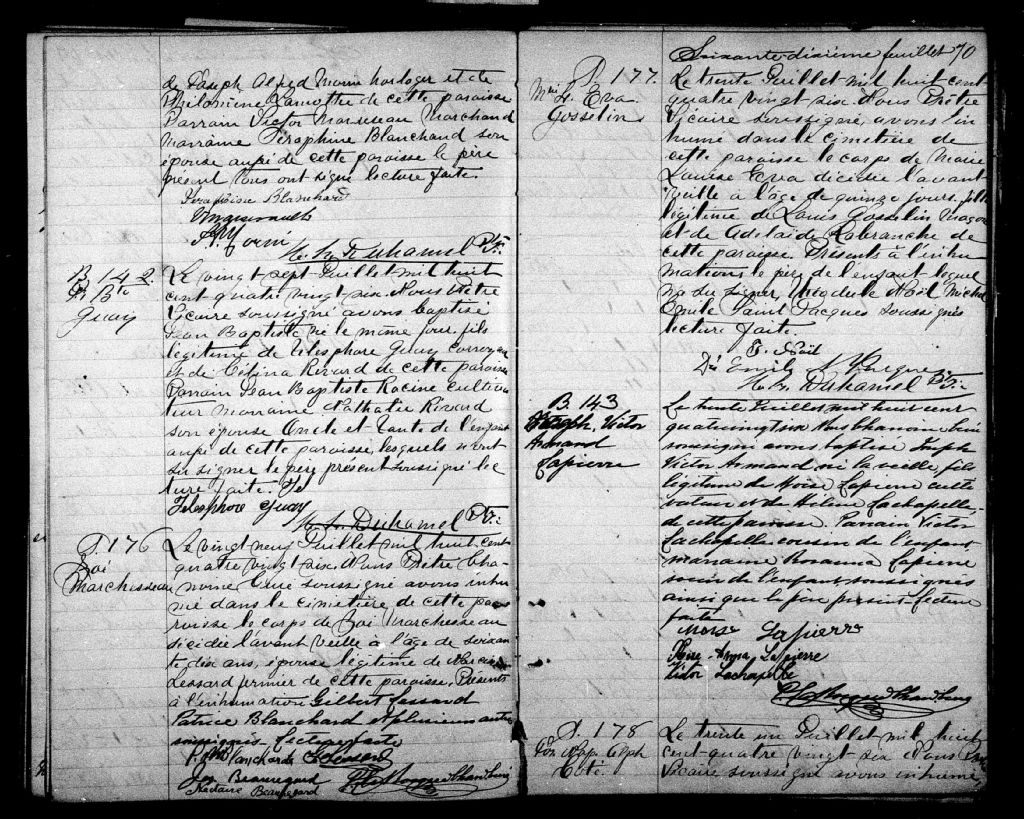 de Joseph Alfred Morin horloger et de
Philomène Lamothe de cette paroisse
Parrain Victor Marsseau Marchand
Marraine Séraphine Blanchard son
épouse aussi de cette paroisse le père
présent tous ont signé lecture faite.
Séraphine Blanchard
A. Morin
Duhamel Ptr.
B 142
J. Bte
Guay
Le vingt sept Juillet mil huit
cent quatre vingt six Nous Prêtre
Vicaire soussigné avons baptisé
Jean Baptiste né le même jour fils
légitime de Télesphore Guay Corroyeur
et de Célina Rivard de cette paroisse
Parrain Jean Baptiste Racine Cultiva
teur marraine Nathalie Rivard
son épouse Oncle et Tante de l'enfant
aussi de cette paroisse, lesquels n'ont
su signer le père présent soussigné lec
ture faite.
Télesphore Guay
Duhamel Ptr.
S. 176
Zoé
Marchesseau
Le vingt neuf Juillet mil huit cent
quatre vingt six Nous Prêtre Cha-
noine Curé soussigné avons inhu
mé dans le cimetière de cette pa
roisse le corps de Zoé Marchesseau
décédée l'avant veille à l'âge de soixan
te dix ans, épouse légitime de Narcisse
Lessard fermier de cette paroisse, Présents
à l'inhumation Gilbert Lessard
Patrice Blanchard et plusieurs autres
soussignés lecture faite
Blanchard
Jos Beauregard
Nectaire Beauregard
Soixante-dixième feuillet 70
S. 177.
M. L. Eva
Gosselin
Le trente Juillet mil huit cent
quatre vingt six Nous Prêtre
Vicaire soussigné avons in
humé dans le cimetière de
cette paroisse le corps de Marie
Louise Eva décédée l'avant
veille à l'âge de quinze jours, fille
légitime de Louis Gosselin Maçon
et de Adelaïde Labranche de
cette paroisse. Présents à l'inhu
mation le père de l'enfant lequel
n'a su signer, Noël Michel
Emile Saint Jacques soussignés
lecture faite.
Noël
Duhamel Ptr.
B. 143
Joseph, Victor
Armand
Lapierre
Le trente Juillet mil huit cent
quatrevingt six Nous Chanoine Curé
soussigné avons baptisé Joseph
Victor Armand né la veille, fils
légitime de Moïse Lapierre culti
vateur et de Hélène Lachapelle,
de cette paroisse. Parrain Victor
Lachapelle cousin de l'enfant,
marraine Rosanna Lapierre
soeur de l'enfant, soussignés
ainsi que le père présent. Lecture
faite
Moise Lapierre
Anna Lapierre
Victor Lachapelle
S. 178
Côté.
Le trente un Juillet mil huit
cent quatre vingt six Nous Prêtre
Vicaire soussigné avons inhumé